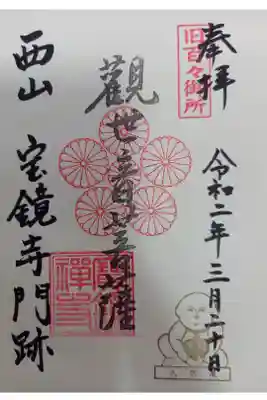 奉拝
旧百々御所
令和二年三月二十日
觀世音菩薩
西山 宝鏡寺門跡